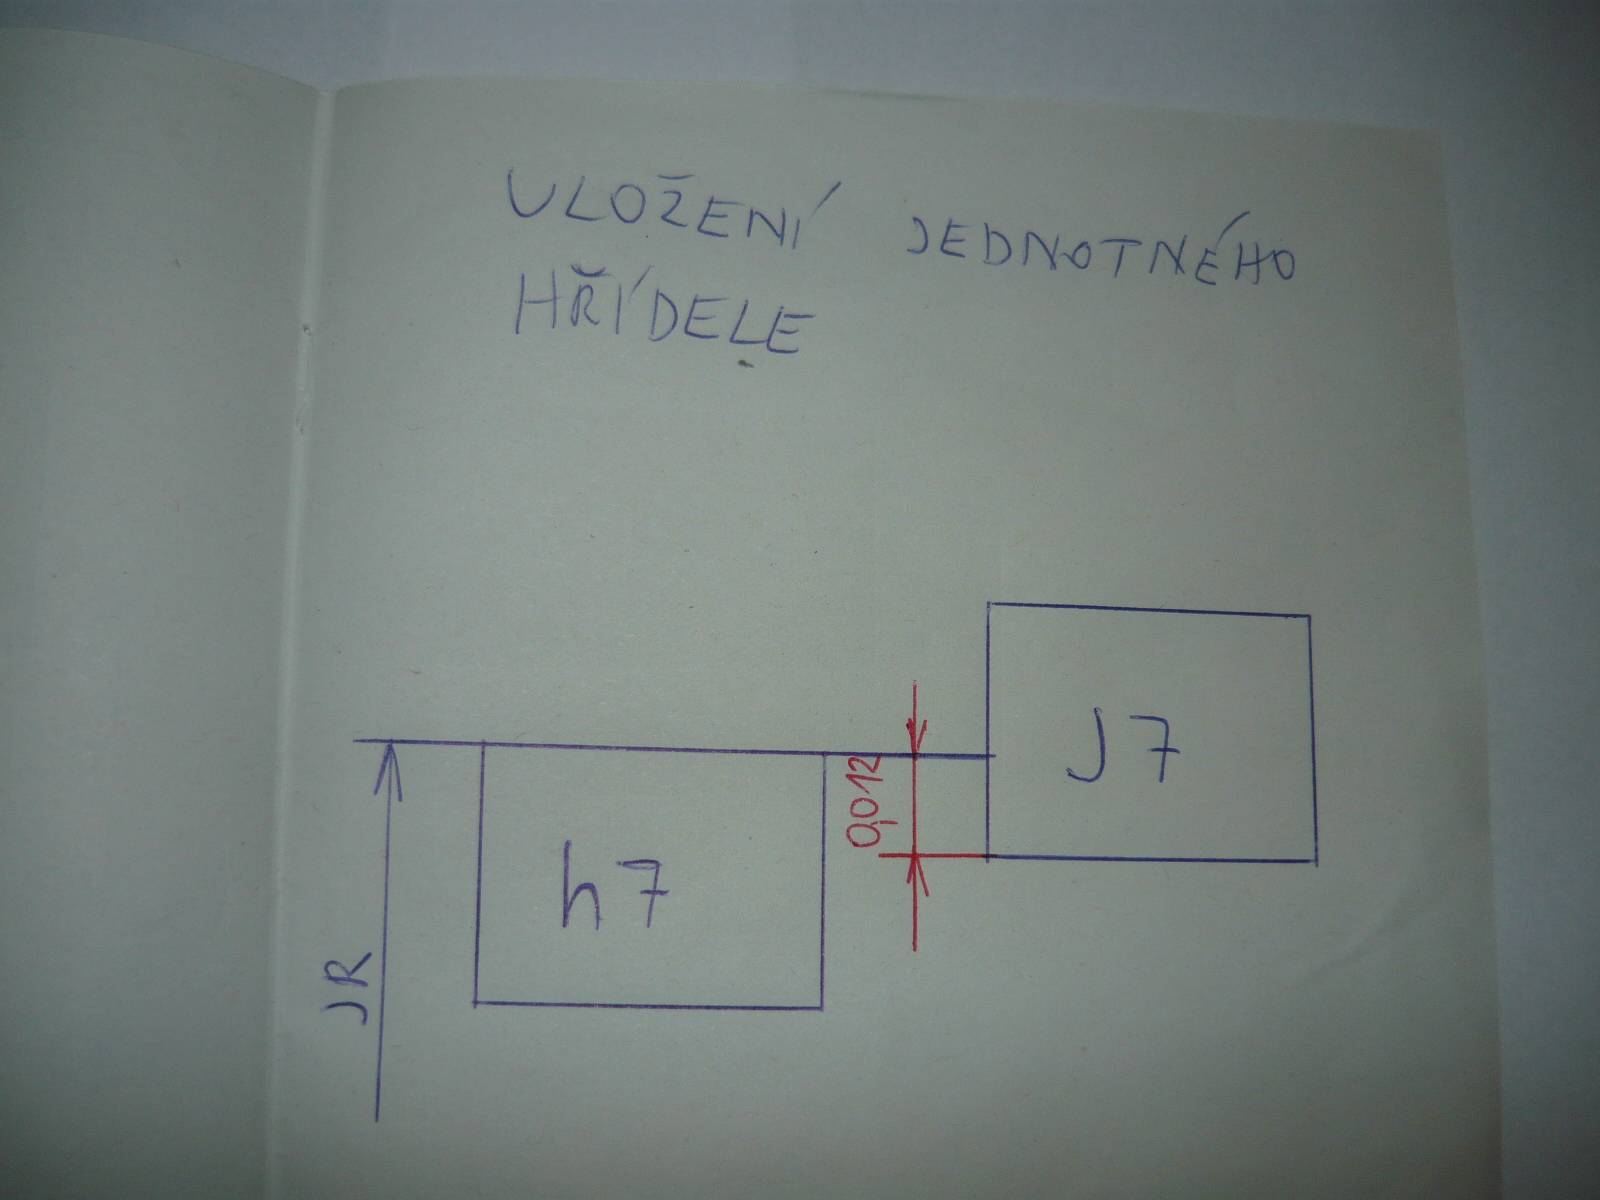 ULOŽENÍ JEDNOTNÉHO
HŘÍDELE
J7
0,012
h7
JR